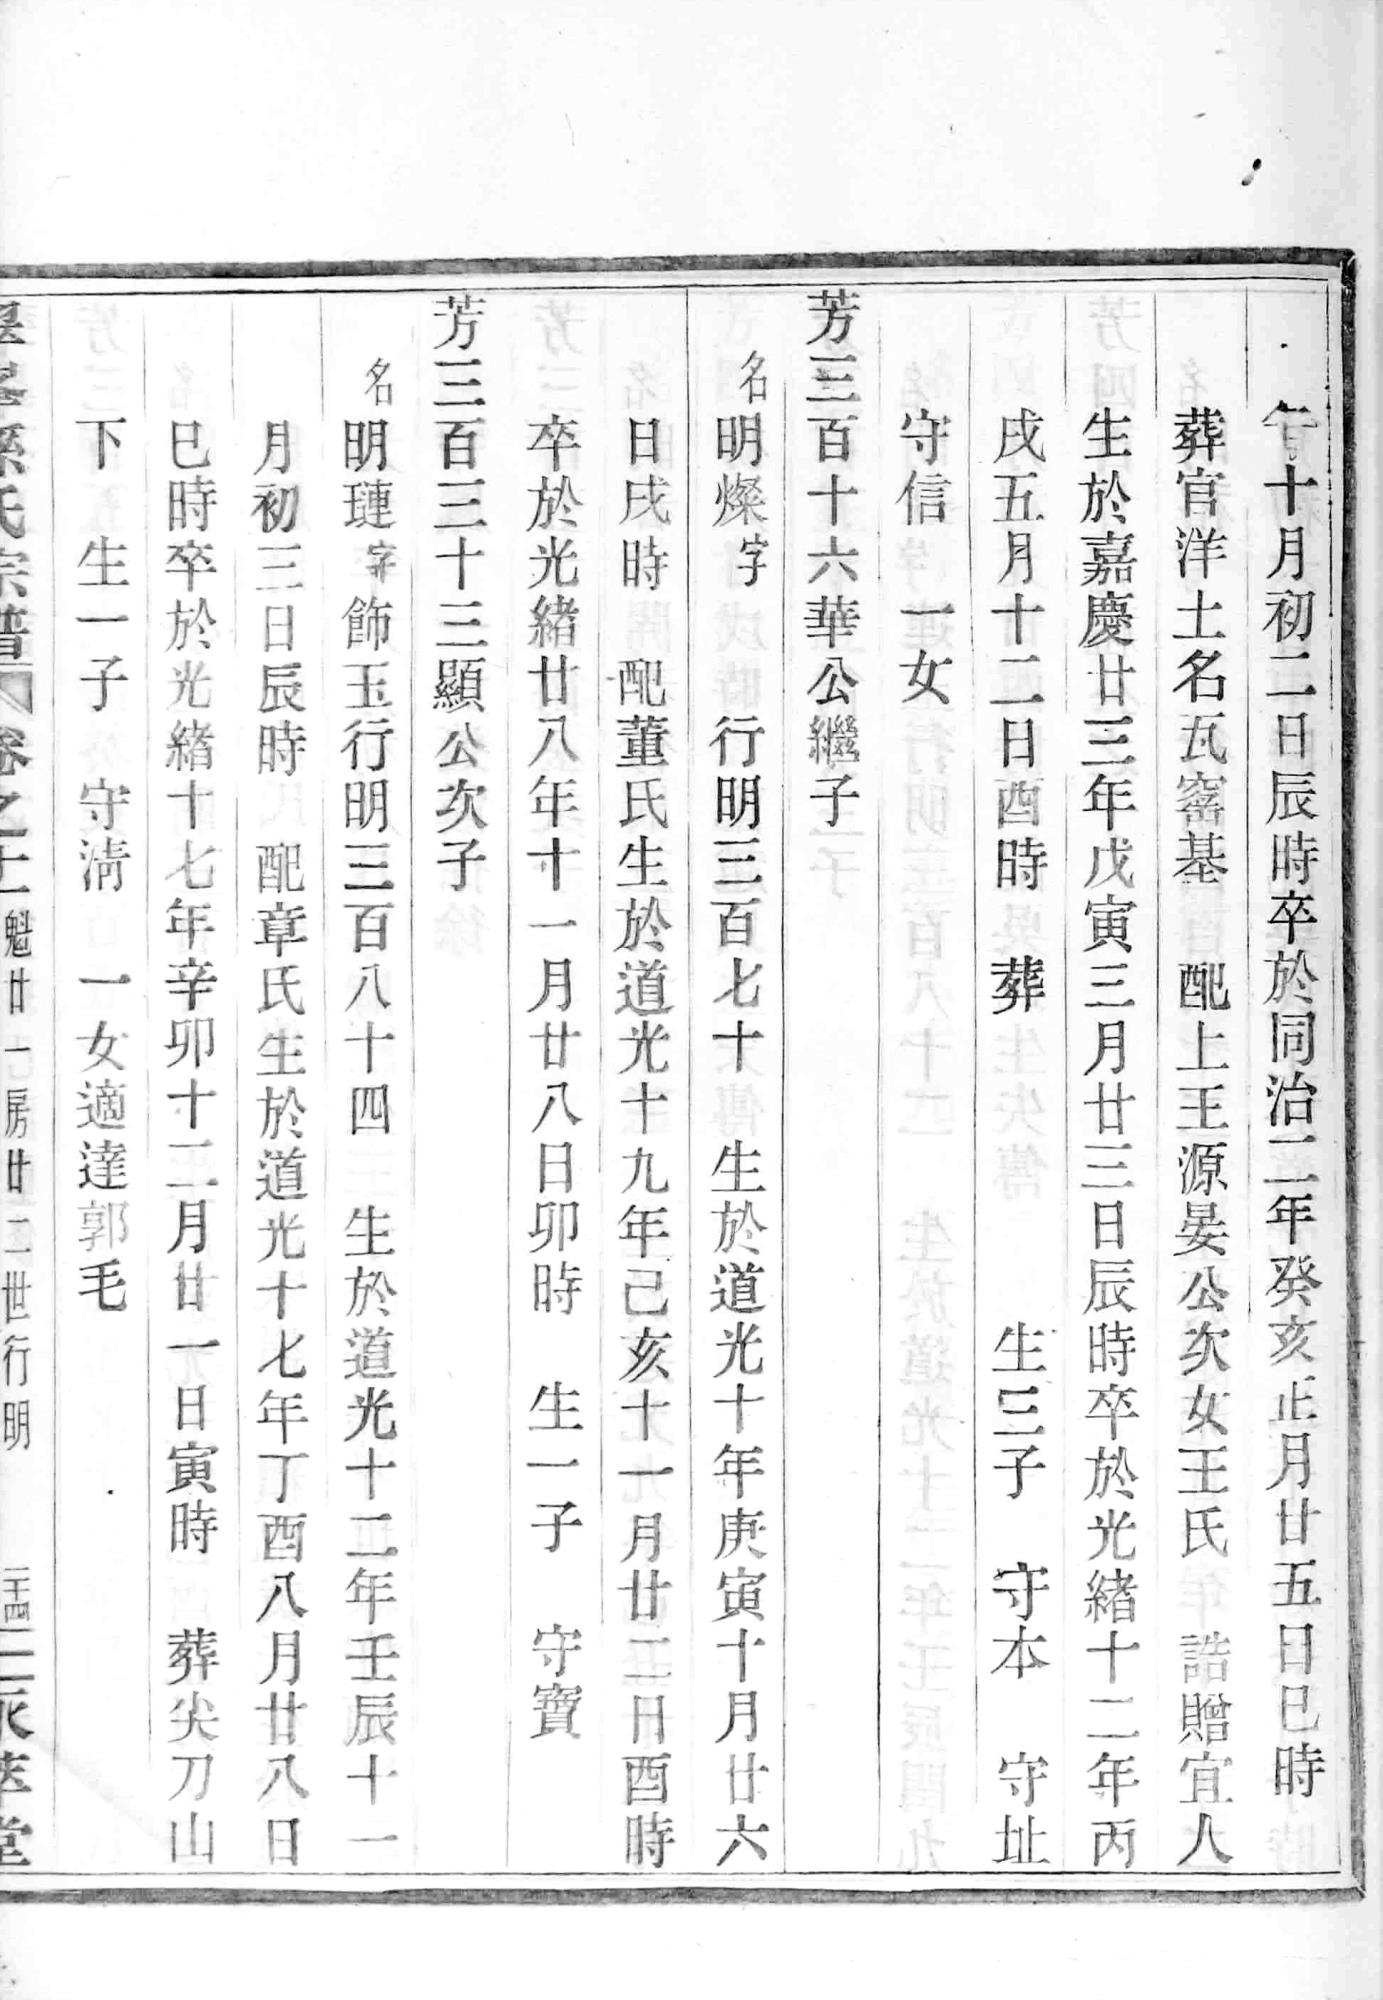 十月初二日辰時卒於同治二年癸亥正月廿五日巳時
葬官洋土名瓦窰基　配上王源晏公次女王氏　誥贈宜人
生於嘉慶廿三年戊寅三月廿三日辰時卒於光緒十二年丙
戌五月十二日酉時　葬　生三子　守本　守址
守信　一女
芳三百十六華公繼子
名明燦字　行明三百七十　生於道光十年庚寅十月廿六
日戌時　配董氏生於道光十九年己亥十一月廿二日酉時
卒於光緒廿八年十一月廿八日卯時　生一子　守寶
芳三百三十三顯公次子
名明璉字飾玉行明三百八十四　生於道光十二年壬辰十一
月初三日辰時　配章氏生於道光十七年丁酉八月廿八日
巳時卒於光緒十七年辛卯十二月廿一日寅時　葬尖刀山
下　生一子　守淸　一女適達郭毛
孫氏宗譜　卷之十一　魁廿一房廿二世行明　二十四　萃堂